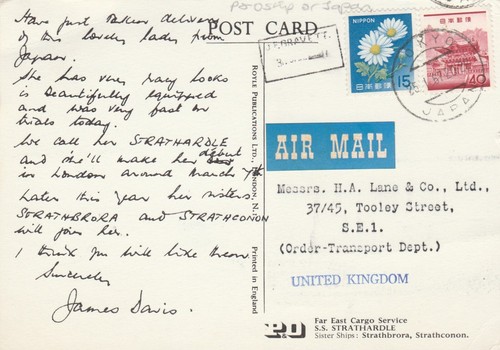 Paroship or Japan
POST CARD
Have just taken delivery
of this lovely lady from
Japan.
She has very racy looks
is beautifully equipped
and was very fast on
trials today.
We call her STRATHARDLE
and she'll make her debut
in London around March 7th
Later this year her sisters
STRATHBRORA and STRATHCONON
will join her.
I think you will like them.
Sincerely
James Davis.
ROYLE PUBLICATIONS LTD., LONDON, N.1.
Printed in England
NIPPON
日本郵便
15
日本郵便
40
JAPAN
AIR MAIL
Messrs. H.A. Lane & Co., Ltd.,
37/45, Tooley Street,
S.E.1.
(Order-Transport Dept.)
UNITED KINGDOM
P&O
Far East Cargo Service
S.S. STRATHARDLE
Sister Ships: Strathbrora, Strathconon.